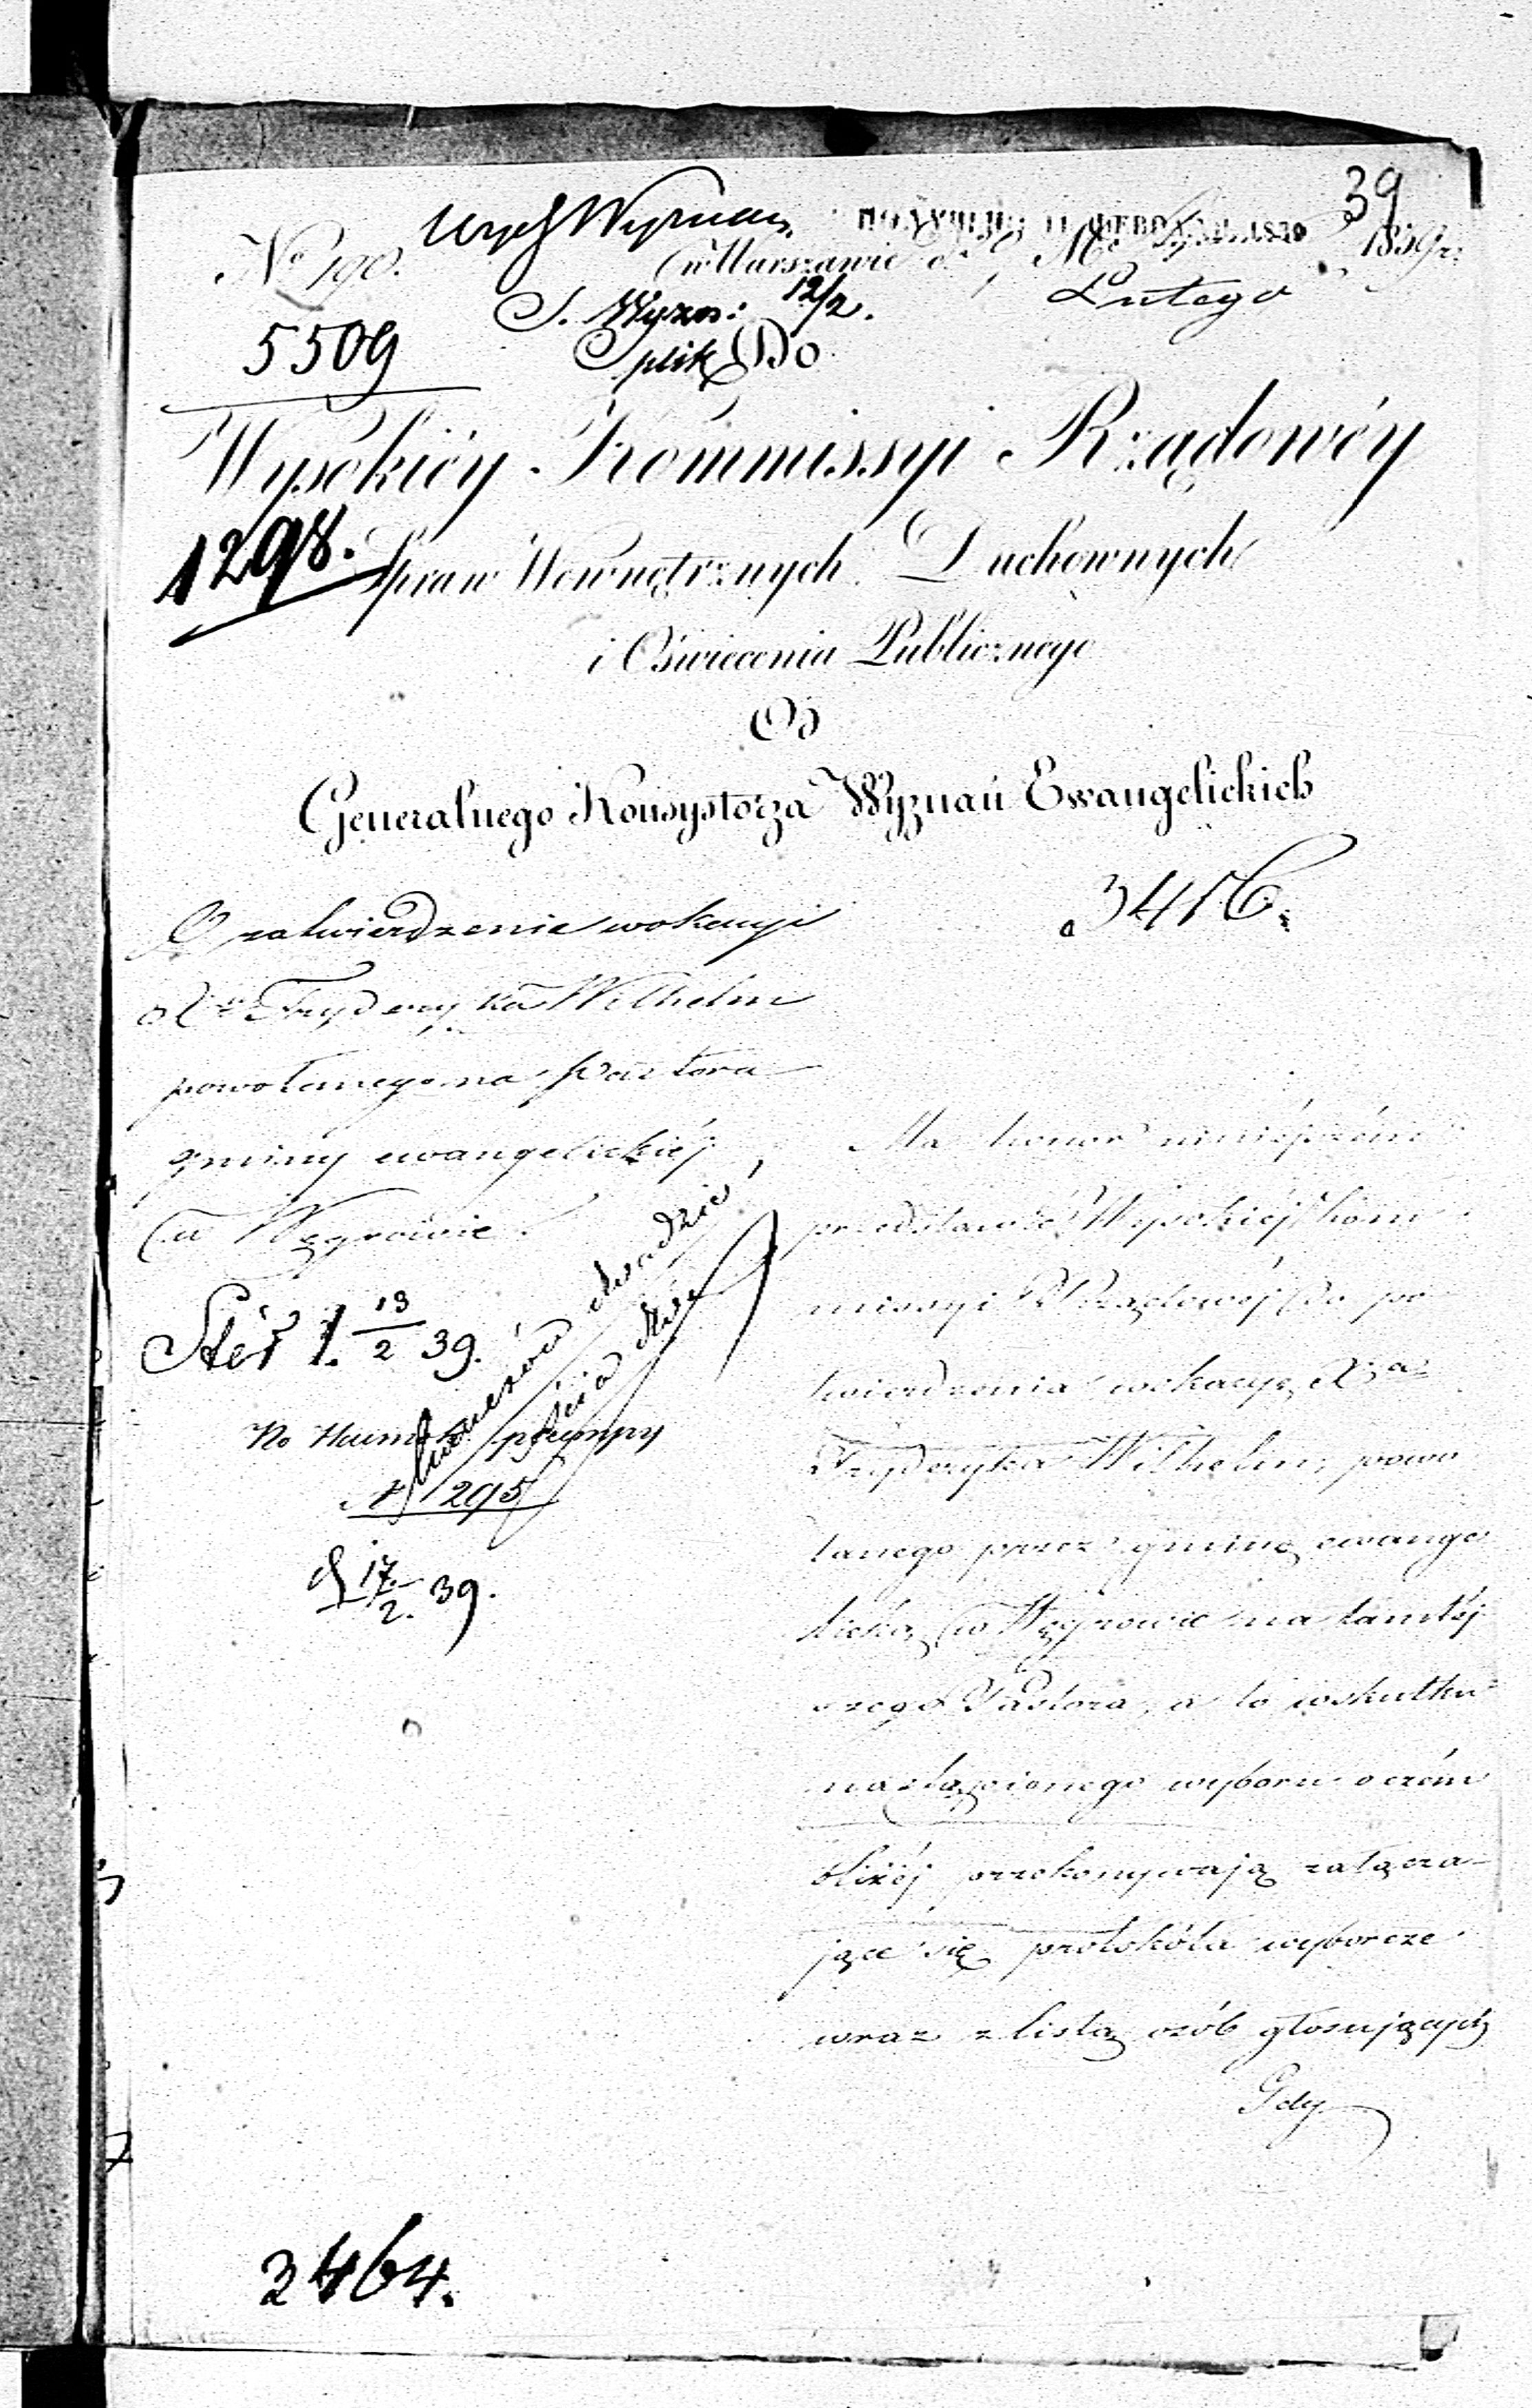 39
Wyznań
ПОЛУЧЕНО 11 ФЕВРАЛЯ 1839
No 190.
w Warszawie d. 1839 r.
Lutego
S. Wyzn: 12/2.
5509
plik
Do
Wysokiéy Kommissyi Rządowéy
1298.
Spraw Wewnętrznych Duchownych
i Oświecenia Publicznego
Od
Generalnego Konsystorza Wyznań Ewangelickich
3416.
O zatwierdzenie wokacyi
Xa Fryderyka Wilhelm
powołanego na Pastora
gminy ewangelickiéj
w Węgrowie.
13/2 39.
No 1295
d 17/2. 39.
Ma honor niniéjszém
przedstawić Wysokiéj Kom
missyi Rządowéj do po
twierdzenia wokacyę Xa
Fryderyka Wilhelm, powo
łanego przez gminę ewange
licką w Węgrowie na tamtéj
szego Pastora, a to wskutku
nastąpionego wyboru o czém
bliżéj przekonywają załącza
jące się protokóła wyborcze
wraz z listą osób głosujących
Gdy
3464.